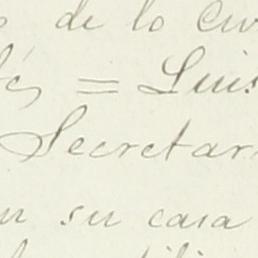 de lo Civ
= Luis
Secretar
en su casa